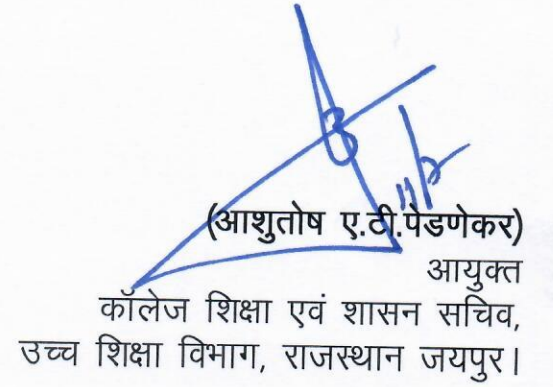 11/2
(आशुतोष ए.टी.पेडणेकर)
आयुक्त
कॉलेज शिक्षा एवं शासन सचिव,
उच्च शिक्षा विभाग, राजस्थान जयपुर।